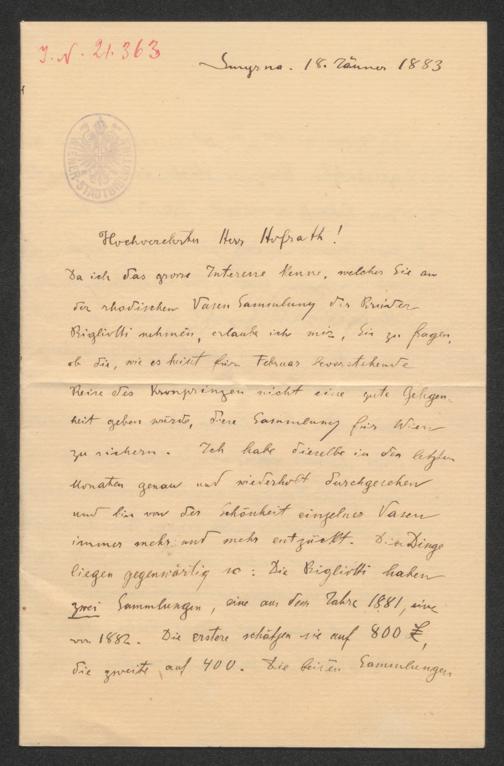 J. N. 21.363
Smyrna. 18. Jänner 1883
WIENER-STADTBIBLIOTHEK
Hochverehrter Herr Hofrath!
Da ich das grosse Interesse kenne, welches Sie an
der rhodischen Vasen Sammlung der Brüder
Bigliotti nehmen, erlaube ich mir, Sie zu fragen,
ob die, wie es heisst für Februar bevorstehende
Reise des Kronprinzen nicht eine gute Gelegen-
heit geben würde, diese Sammlung für Wien
zu sichern. Ich habe dieselbe in den letzten
Monaten genau und wiederholt durchgesehen
und bin von der Schönheit einzelner Vasen
immer mehr und mehr entzückt. Die Dinge
liegen gegenwärtig so: Die Bigliotti haben
zwei Sammlungen, eine aus dem Jahre 1881, eine
von 1882. Die erstere schätzen sie auf 800 £,
die zweite auf 400. Die beiden Sammlungen